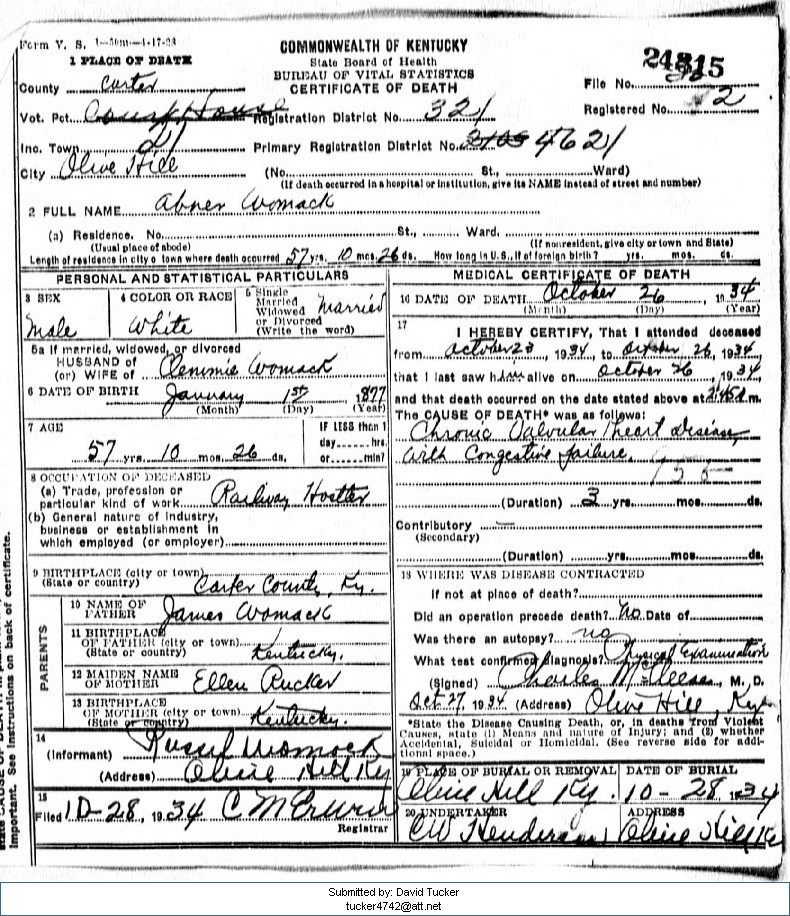 Form V. S. 1-50m-4-17-23
COMMONWEALTH OF KENTUCKY
State Board of Health
BUREAU OF VITAL STATISTICS
CERTIFICATE OF DEATH
1 PLACE OF DEATH
County Carter
File No. 24815
Vot. Pct. Court House Registration District No. 321 Registered No. 2
Inc. Town 21 Primary Registration District No. 2105 4621
City Olive Hill (No. St., Ward)
(If death occurred in a hospital or institution, give its NAME instead of street and number)
2 FULL NAME Abner Womack
(a) Residence. No. St., Ward.
(Usual place of abode) (If nonresident, give city or town and State)
Length of residence in city o town where death occurred 57 yrs. 10 mos. 26 ds. How long in U.S., if of foreign birth? yrs. mos. ds.
PERSONAL AND STATISTICAL PARTICULARS
3 SEX Male
4 COLOR OR RACE White
5 Single Married Widowed or Divorced (Write the word) Married
5a If married, widowed, or divorced
HUSBAND of
(or) WIFE of Clemmie Womack
6 DATE OF BIRTH January 1st, 1877
(Month) (Day) (Year)
7 AGE
57 yrs. 10 mos. 26 ds.
IF LESS than 1
day hrs.
or min?
8 OCCUPATION OF DECEASED
(a) Trade, profession or
particular kind of work Railway Hostler
(b) General nature of industry,
business or establishment in
which employed (or employer)
9 BIRTHPLACE (city or town)
(State or country) Carter County, Ky.
PARENTS
10 NAME OF
FATHER James Womack
11 BIRTHPLACE
OF FATHER (city or town)
(State or country) Kentucky.
12 MAIDEN NAME
OF MOTHER Ellen Rucker
13 BIRTHPLACE
OF MOTHER (city or town)
(State or country) Kentucky.
14
(Informant) Russel Womack
(Address) Olive Hill Ky
15
Filed 10-28, 1934 C M Erwin
Registrar
MEDICAL CERTIFICATE OF DEATH
16 DATE OF DEATH October 26, 1934
(Month) (Day) (Year)
17
I HEREBY CERTIFY, That I attended deceased
from October 23, 1934, to October 26, 1934
that I last saw him alive on October 26, 1934
and that death occurred on the date stated above at m.
The CAUSE OF DEATH* was as follows:
Chronic Valvular Heart Disease,
with Congestive failure.
(Duration) 3 yrs. mos. ds.
Contributory
(Secondary)
(Duration) yrs. mos. ds.
18 WHERE WAS DISEASE CONTRACTED
If not at place of death?
Did an operation precede death? no Date of
Was there an autopsy? no
What test confirmed diagnosis? Physical Examination
(Signed) Charles M. D.
Oct 27, 1934 (Address) Olive Hill, Ky
*State the Disease Causing Death, or, in deaths from Violent
Causes, state (1) Means and nature of Injury; and (2) whether
Accidental, Suicidal or Homicidal. (See reverse side for addi-
tional space.)
19 PLACE OF BURIAL OR REMOVAL DATE OF BURIAL
Olive Hill Ky. 10-28, 1934
20 UNDERTAKER ADDRESS
CW Henderson Olive Hill Ky
important. See instructions on back of certificate.
Submitted by: David Tucker
tucker4742@att.net